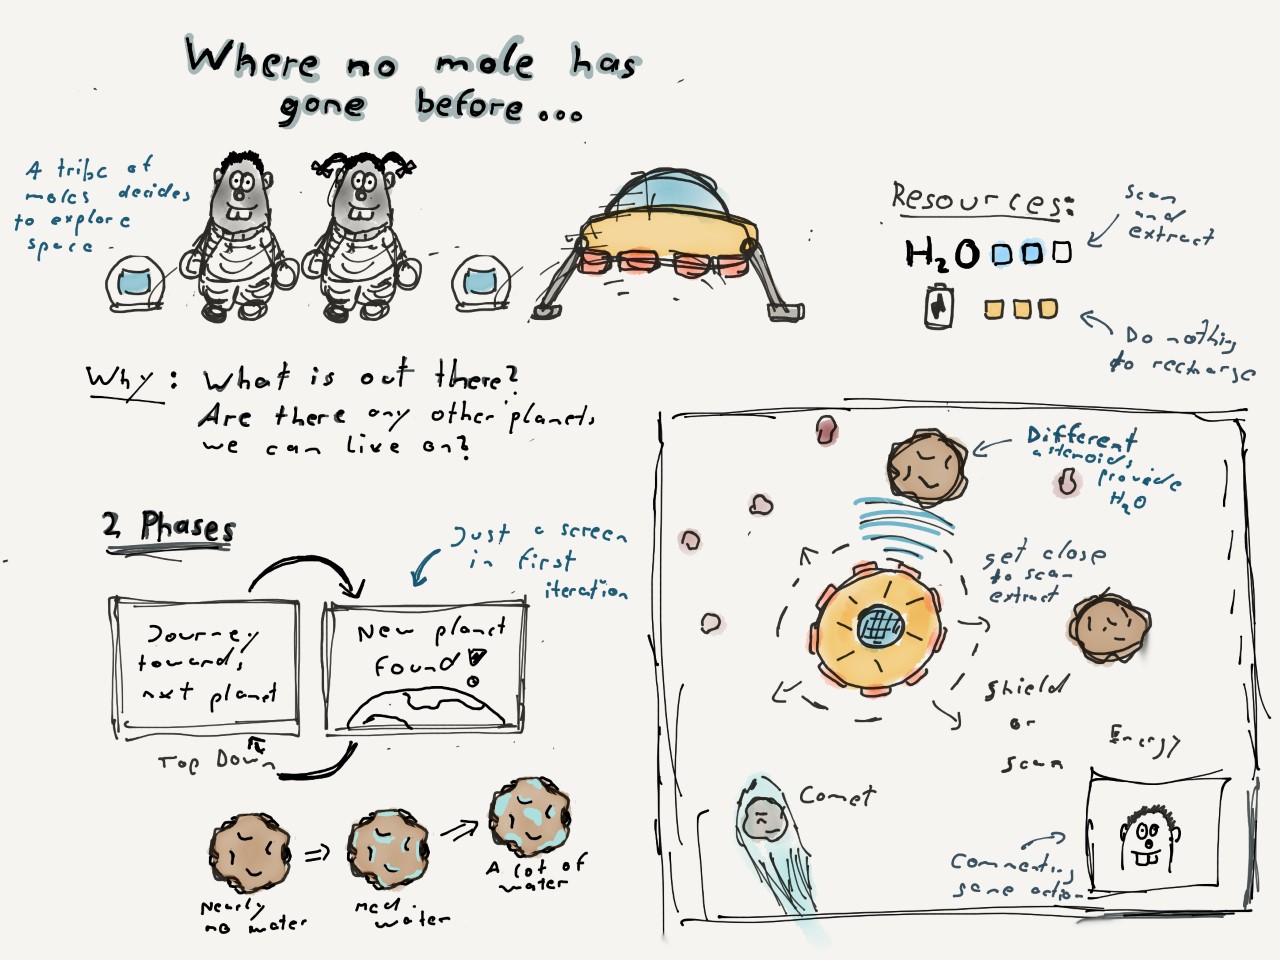 Where no mole has
gone before...
A tribe of
moles decides
to explore
space
Resources:
Scan
and
extract
H2O
Do nothing
to recharge
Why: What is out there?
Are there any other planets
we can live on?
2 Phases
Just a screen
in first
iteration
Journey
towards
nxt planet
New planet
found!
Top Down
Nearly
no water
Med.
water
A lot of
water
Different
asteroids
provide
H2O
get close
to scan
extract
Shield
or
scan
Energy
Comet
Commenting
some action